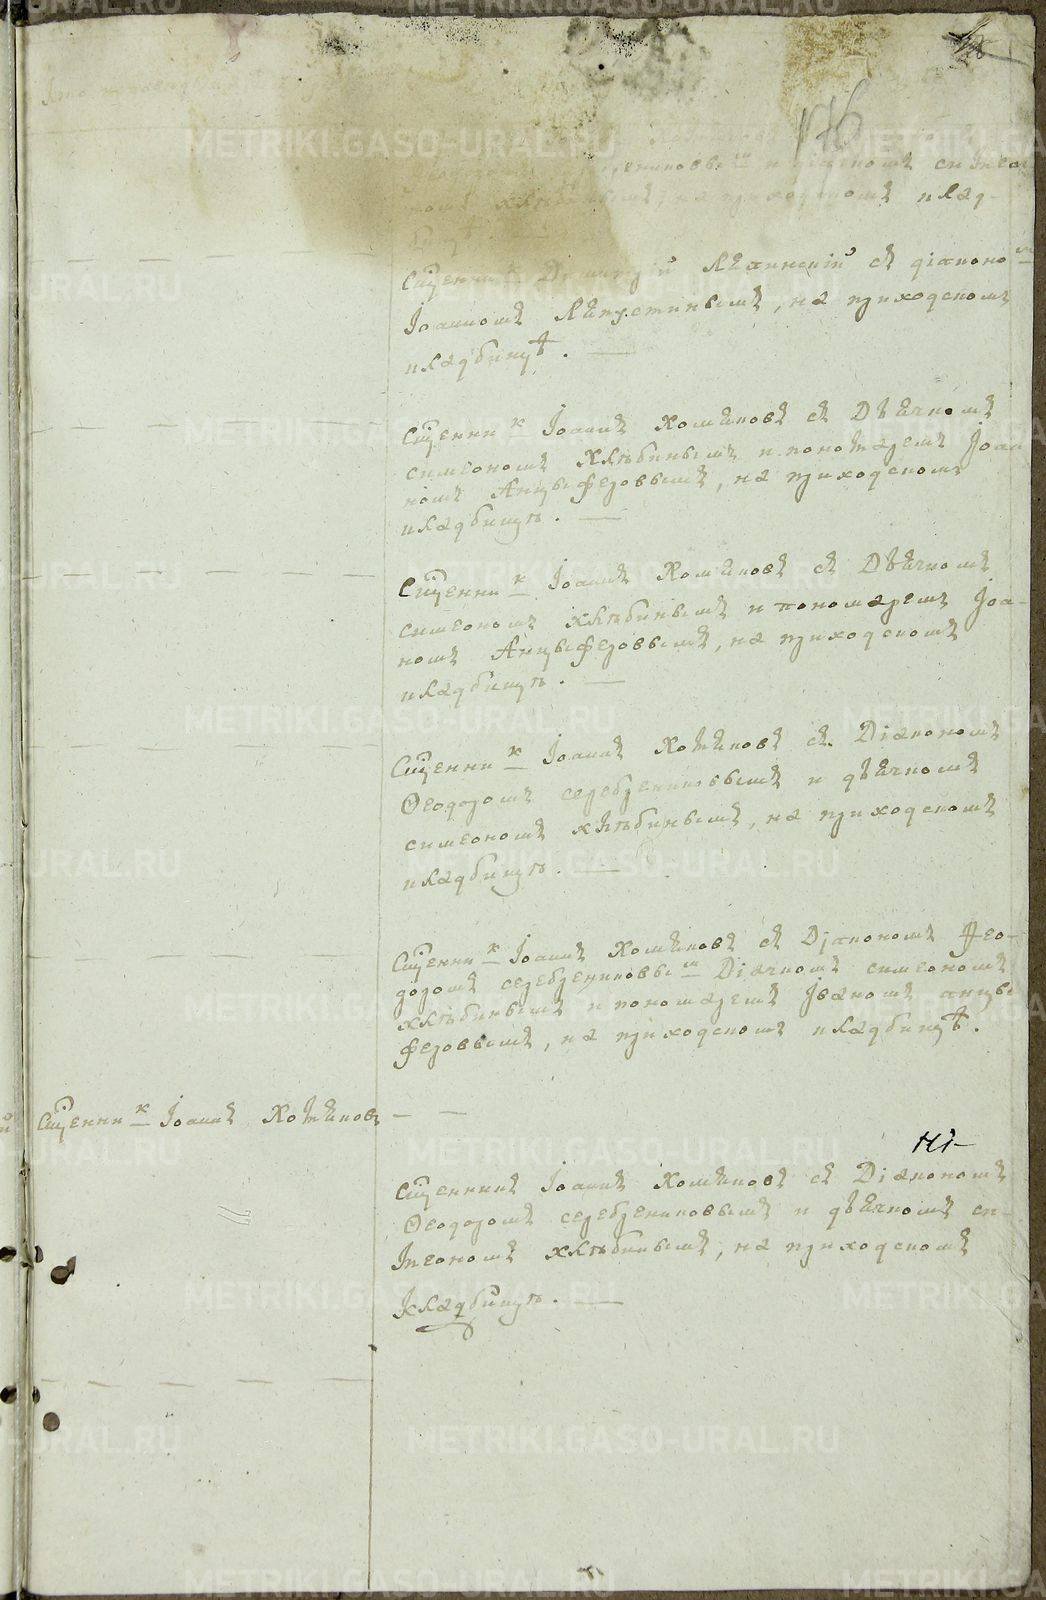 176
на приходскомъ клад-
Священникъ Димитрій с діакономъ
Іоанномъ Ляпустинымъ, на приходскомъ
кладбищѣ.
Священникъ Іоаннъ Хотѣновъ съ Дьячкомъ
симеономъ Хлѣбинымъ и пономаремъ Іоан
номъ Анцыферовымъ, на приходскомъ
кладбищѣ.
Священникъ Іоаннъ Хотѣновъ съ Дьячкомъ
симеономъ хлѣбинымъ и пономаремъ Іоа-
номъ Анцыферовымъ, на приходскомъ
кладбищѣ.
Священникъ Іоаннъ Хотѣновъ съ Діакономъ
Ѳеодоромъ серебрениковымъ и дьячкомъ
симеономъ хлѣбинымъ, на приходскомъ
кладбищѣ.
Священникъ Іоаннъ Хотѣновъ съ Діакономъ Ѳео-
доромъ серебрениковымъ Діячкомъ симеономъ
хлѣбинымъ и пономаремъ Іваномъ анцы
феровымъ, на приходскомъ кладбищѣ.
Священникъ Іоаннъ Хотѣновъ
Священникъ Іоаннъ Хотѣновъ съ Діакономъ
Ѳеодоромъ серебрениковымъ и дьячкомъ си-
меономъ хлѣбинымъ, на приходскомъ
кладбищѣ.
METRIKI.GASO-URAL.RU